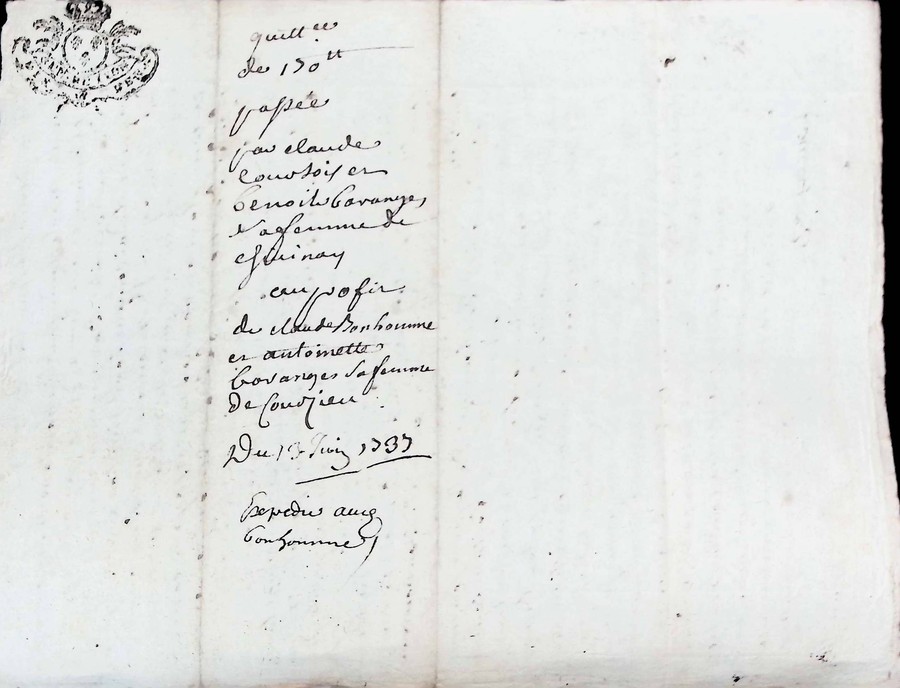 quittce
de 150tt
passée
par claude
Courtois et
benoite baranges
sa femme de
au profit
de claude Bonhomme
et antoinette
baranges sa femme
de Courzieu
Du 13 Juin 1737
Expedié aux
bonhomme